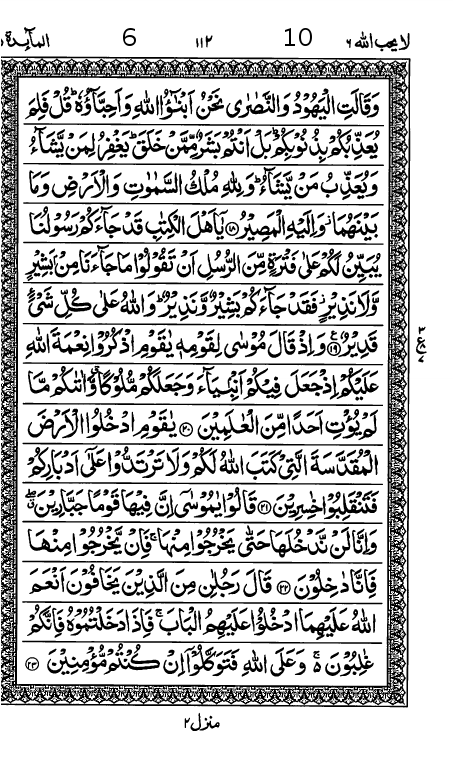 لا يحب الله ٦ 10 ١١٢ 6 المآىِٕدة
وَقَالَتِ الْيَهُوْدُ وَالنَّصٰرٰى نَحْنُ اَبْنٰٓؤُا اللّٰهِ وَاَحِبَّآؤُهٗ ؕ قُلْ فَلِمَ
يُعَذِّبُكُمْ بِذُنُوْبِكُمْ ؕ بَلْ اَنْتُمْ بَشَرٌ مِّمَّنْ خَلَقَ ؕ يَغْفِرُ لِمَنْ يَّشَآءُ
وَيُعَذِّبُ مَنْ يَّشَآءُ ؕ وَلِلّٰهِ مُلْكُ السَّمٰوٰتِ وَالْاَرْضِ وَمَا
بَيْنَهُمَا ۫ وَاِلَيْهِ الْمَصِيْرُ ﴿۱۸﴾ يٰۤاَهْلَ الْكِتٰبِ قَدْ جَآءَكُمْ رَسُوْلُنَا
يُبَيِّنُ لَكُمْ عَلٰى فَتْرَةٍ مِّنَ الرُّسُلِ اَنْ تَقُوْلُوْا مَا جَآءَنَا مِنْۢ بَشِيْرٍ
وَّلَا نَذِيْرٍ ؗ فَقَدْ جَآءَكُمْ بَشِيْرٌ وَّنَذِيْرٌ ؕ وَاللّٰهُ عَلٰى كُلِّ شَىْءٍ
قَدِيْرٌ ﴿۱۹﴾ وَاِذْ قَالَ مُوْسٰى لِقَوْمِهٖ يٰقَوْمِ اذْكُرُوْا نِعْمَةَ اللّٰهِ
عَلَيْكُمْ اِذْ جَعَلَ فِيْكُمْ اَنْۢبِيَآءَ وَجَعَلَكُمْ مُّلُوْكًا ۖ وَّاٰتٰىكُمْ مَّا
لَمْ يُؤْتِ اَحَدًا مِّنَ الْعٰلَمِيْنَ ﴿۲۰﴾ يٰقَوْمِ ادْخُلُوا الْاَرْضَ
الْمُقَدَّسَةَ الَّتِىْ كَتَبَ اللّٰهُ لَكُمْ وَلَا تَرْتَدُّوْا عَلٰٓى اَدْبَارِكُمْ
فَتَنْقَلِبُوْا خٰسِرِيْنَ ﴿۲۱﴾ قَالُوْا يٰمُوْسٰٓى اِنَّ فِيْهَا قَوْمًا جَبَّارِيْنَ ۖ
وَاِنَّا لَنْ نَّدْخُلَهَا حَتّٰى يَخْرُجُوْا مِنْهَا ۚ فَاِنْ يَّخْرُجُوْا مِنْهَا
فَاِنَّا دٰخِلُوْنَ ﴿۲۲﴾ قَالَ رَجُلٰنِ مِنَ الَّذِيْنَ يَخَافُوْنَ اَنْعَمَ
اللّٰهُ عَلَيْهِمَا ادْخُلُوْا عَلَيْهِمُ الْبَابَ ۚ فَاِذَا دَخَلْتُمُوْهُ فَاِنَّكُمْ
غٰلِبُوْنَ ۚ وَعَلَى اللّٰهِ فَتَوَكَّلُوْۤا اِنْ كُنْتُمْ مُّؤْمِنِيْنَ ﴿۲۳﴾
منزل ٢